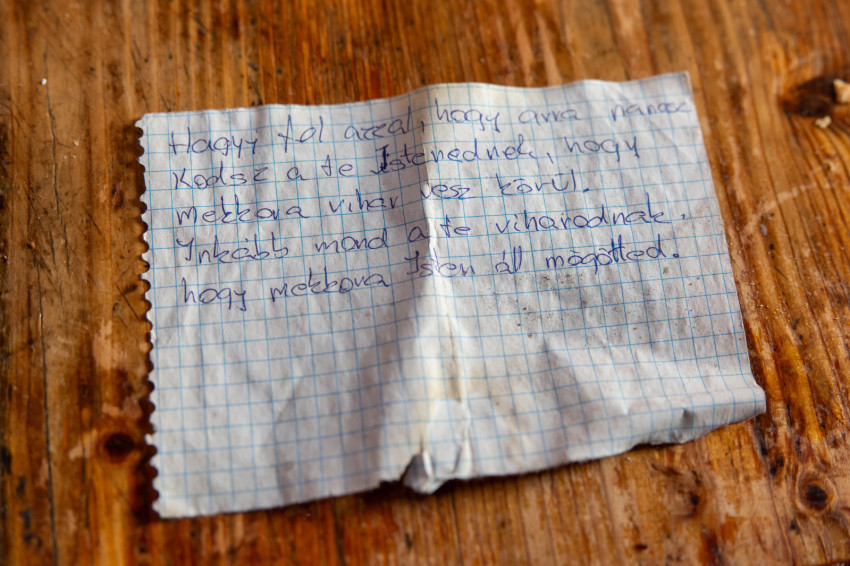 Hagyj föl azzal, hogy arra panasz
kodsz a te Istenednek, hogy
mekkora vihar vesz körül.
Inkább mond a te viharodnak,
hogy mekkora Isten áll mögötted.